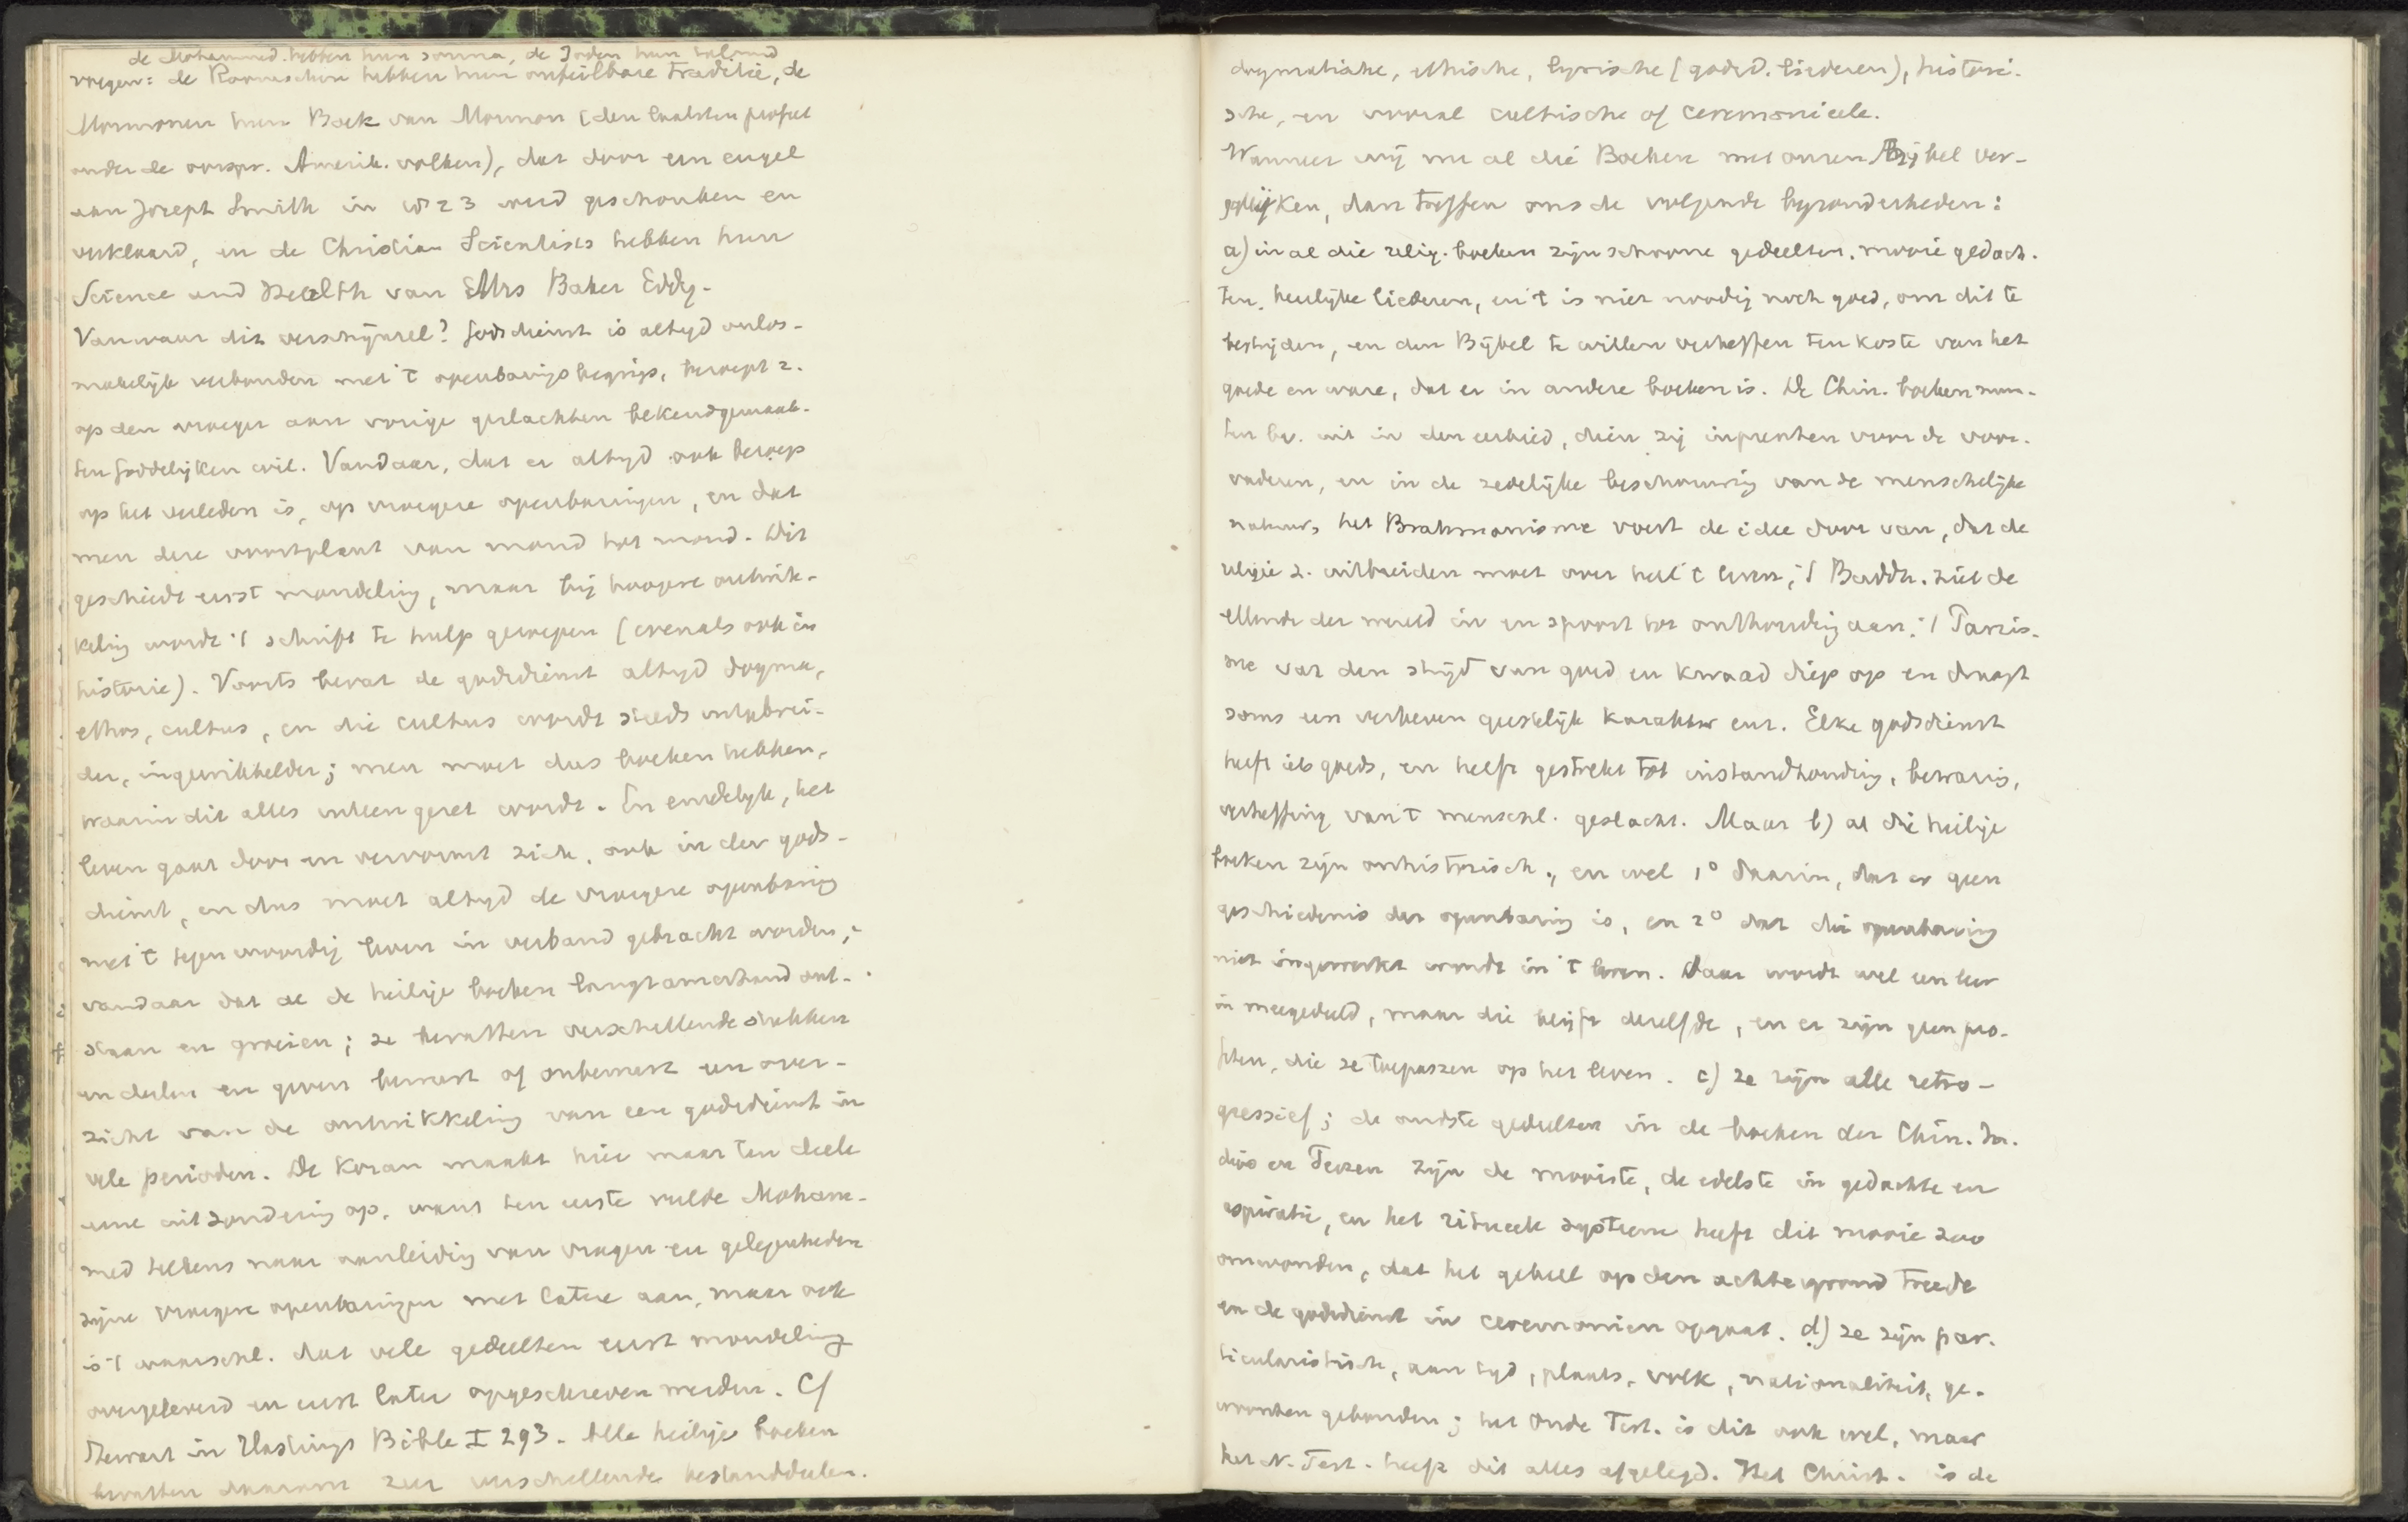 de Mohammed. hebben hun sonna, de Joden hun talmud
vroegen: de Roomschen hebben hun onfeilbare traditie, de
Mormonen hun Boek van Mormon (den laatsten profeet
onder de oorspr. Amerik. volken), dat door een engel
aan Joseph Smith in 1823 werd geschonken en
verklaard, en de Christian Scientists hebben hun
Science and Health van Mrs Baker Eddy.
Vanwaar dit verschijnsel? Godsdienst is altijd onlos-
makelijk verbonden met 't openbaringsbegrip, beroept z.
op den vroeger aan vorige geslachten bekendgemaak-
ten goddelijken wil. Vandaar, dat er altijd ook beroep
op het verleden is, op vroegere openbaringen, en dat
men deze voortplant van mond tot mond. Dit
geschiedt eerst mondeling, maar bij hoogere ontwik-
keling wordt 't schrift te hulp geroepen (evenals ook in
historie). Voorts bevat de godsdienst altijd dogma,
ethos, cultus, en die cultus wordt steeds uitgebrei-
der, ingewikkelder; men moet dus boeken hebben,
waarin dit alles uiteengezet wordt. En eindelijk, het
leven gaat door en vervormt zich, ook in den gods-
dienst, en dus moet altijd de vroegere openbaring
met 't tegenwoordig leven in verband gebracht worden;
vandaar dat al de heilige boeken langzamerhand ont-
staan en groeien; ze bevatten verschillende stukken
en deelen en geven bewust of onbewust een over-
zicht van de ontwikkeling van een godsdienst in
vele perioden. De Koran maakt hier maar ten deele
eene uitzondering op, want ten eerste vulde Moham-
med telkens naar aanleiding van vragen en gelegenheden
zijne vroegere openbaringen met latere aan, maar ook
is 't waarschl. dat vele gedeelten eerst mondeling
overgeleverd en eerst later opgeschreven werden. Cf
Stewart in Hastings Bible I 293. Alle heilige boeken
bevatten daarom zeer verschillende bestanddeelen.
dogmatische, ethische, lyrische (godsd. liederen), histori-
sche, en vooral cultische of ceremonieele.
Wanneer wij nu al die Boeken met onzen Bijbel ver-
gelijken, dan treffen ons de volgende bijzonderheden:
a) in al die relig. boeken zijn schoone gedeelten, mooie gedach-
ten, heerlijke liederen, en 't is niet noodig noch goed, om dit te
bestrijden, en den Bijbel te willen verheffen ten koste van het
goede en ware, dat er in andere boeken is. De Chin. boeken mun-
ten bv. uit in den eerbied, dien zij inprenten voor de voor-
vaderen, en in de zedelijke beschouwing van de menschelijke
natuur, het Brahmanisme voert de idee door van, dat de
religie z. uitbreiden moet over heel 't leven; 't Buddh. ziet de
ellende der wereld in en spoort tot onthouding aan; 't Parsis-
me vat den strijd van goed en kwaad diep op en draagt
soms een verheven geestelijk karakter enz. Elke godsdienst
heeft iets goeds, en heeft gestrekt tot instandhouding, bewaring,
verheffing van 't menschl. geslacht. Maar b) al die heilige
boeken zijn onhistorisch, en wel 1° daarin, dat er geen
geschiedenis der openbaring is, en 2° dat die openbaring
niet ingewerkt wordt in 't leven. Daar wordt wel een leer
in meegedeeld, maar die blijft dezelfde, en er zijn geen pro-
feten, die ze toepassen op het leven. c) ze zijn alle retro-
gressief; de oudste gedeelten in de boeken der Chin. In-
diërs en Perzen zijn de mooiste, de edelste in gedachte en
aspiratie, en het ritueele systeem heeft dit mooie zoo
omwonden, dat het geheel op den achtergrond treedt
en de godsdienst in ceremonien opgaat. d) ze zijn par-
ticularistisch, aan tijd, plaats, volk, nationaliteit, ge-
woonten gebonden; het Oude Test. is dit ook wel, maar
het N. Test. heeft dit alles afgelegd. Het Christ. is de